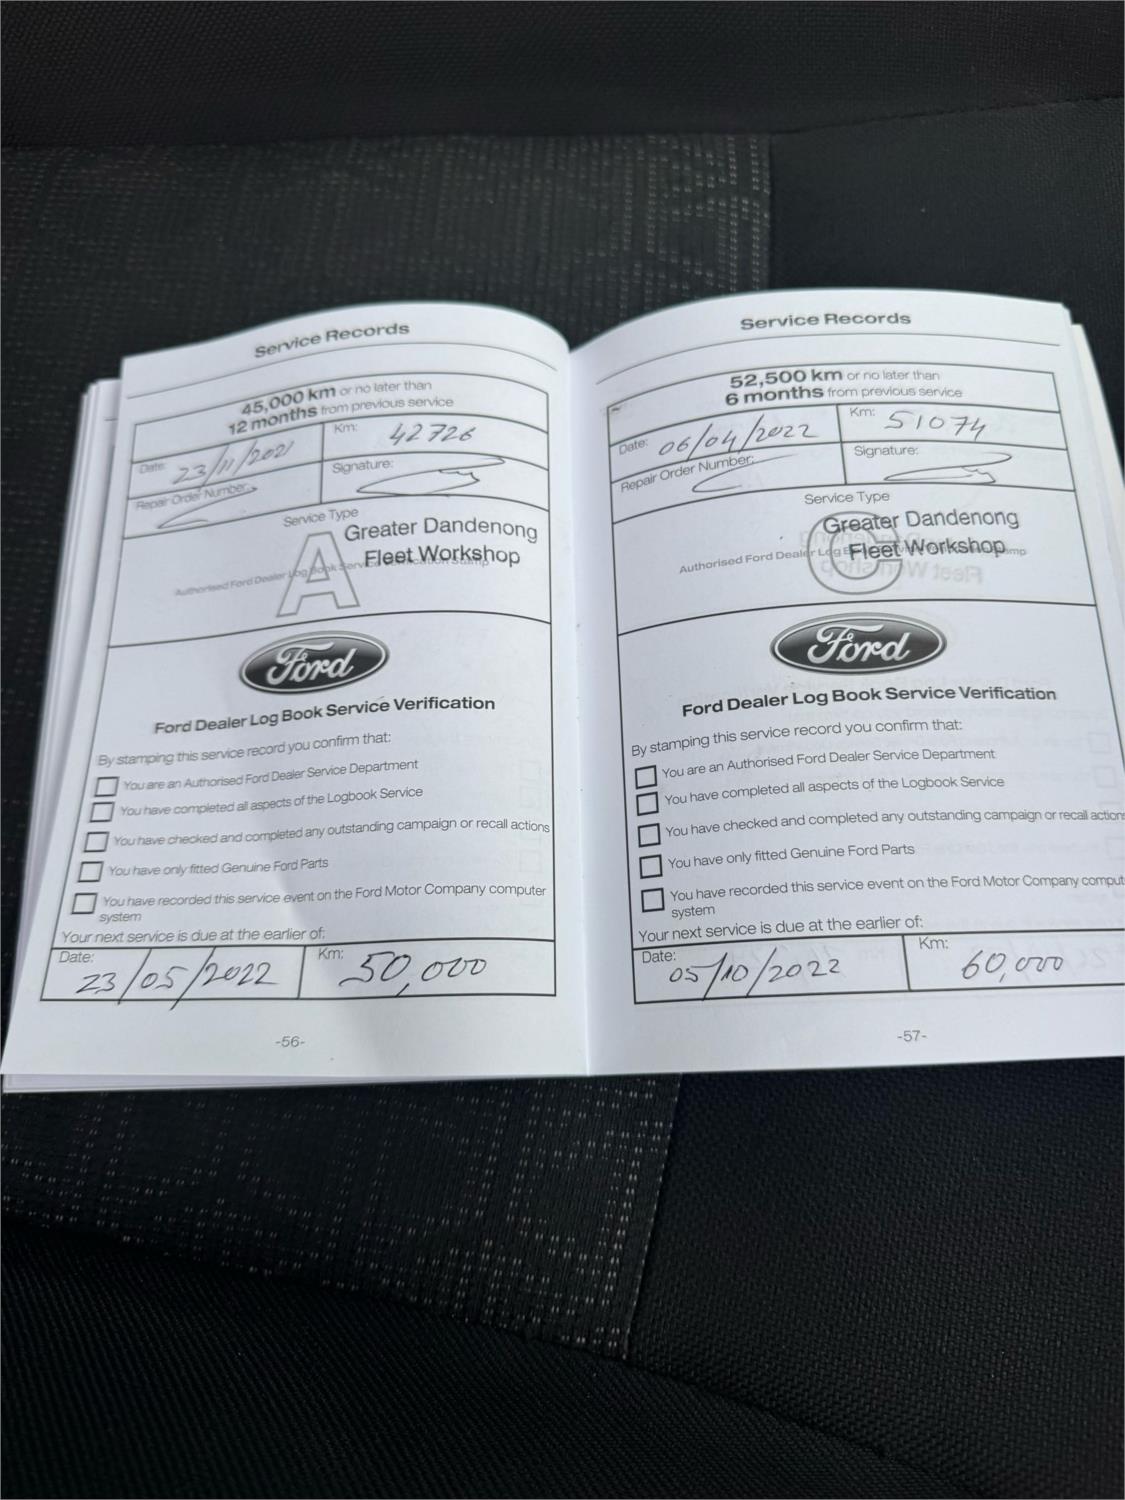 Service Records
45,000 km or no later than
12 months from previous service
Date: 23/11/2021
Km: 42726
Repair Order Number:
Signature:
Service Type
A
Greater Dandenong
Fleet Workshop
Authorised Ford Dealer Log Book Service Verification Stamp
Ford
Ford Dealer Log Book Service Verification
By stamping this service record you confirm that:
You are an Authorised Ford Dealer Service Department
You have completed all aspects of the Logbook Service
You have checked and completed any outstanding campaign or recall actions
You have only fitted Genuine Ford Parts
You have recorded this service event on the Ford Motor Company computer
system
Your next service is due at the earlier of:
Date: 23/05/2022
Km: 50,000
-56-
Service Records
52,500 km or no later than
6 months from previous service
Date: 06/04/2022
Km: 51074
Repair Order Number:
Signature:
Service Type
C
Greater Dandenong
Fleet Workshop
Authorised Ford Dealer Log
Ford
Ford Dealer Log Book Service Verification
By stamping this service record you confirm that:
You are an Authorised Ford Dealer Service Department
You have completed all aspects of the Logbook Service
You have checked and completed any outstanding campaign or recall action
You have only fitted Genuine Ford Parts
You have recorded this service event on the Ford Motor Company comput
system
Your next service is due at the earlier of:
Date: 05/10/2022
Km: 60,000
-57-